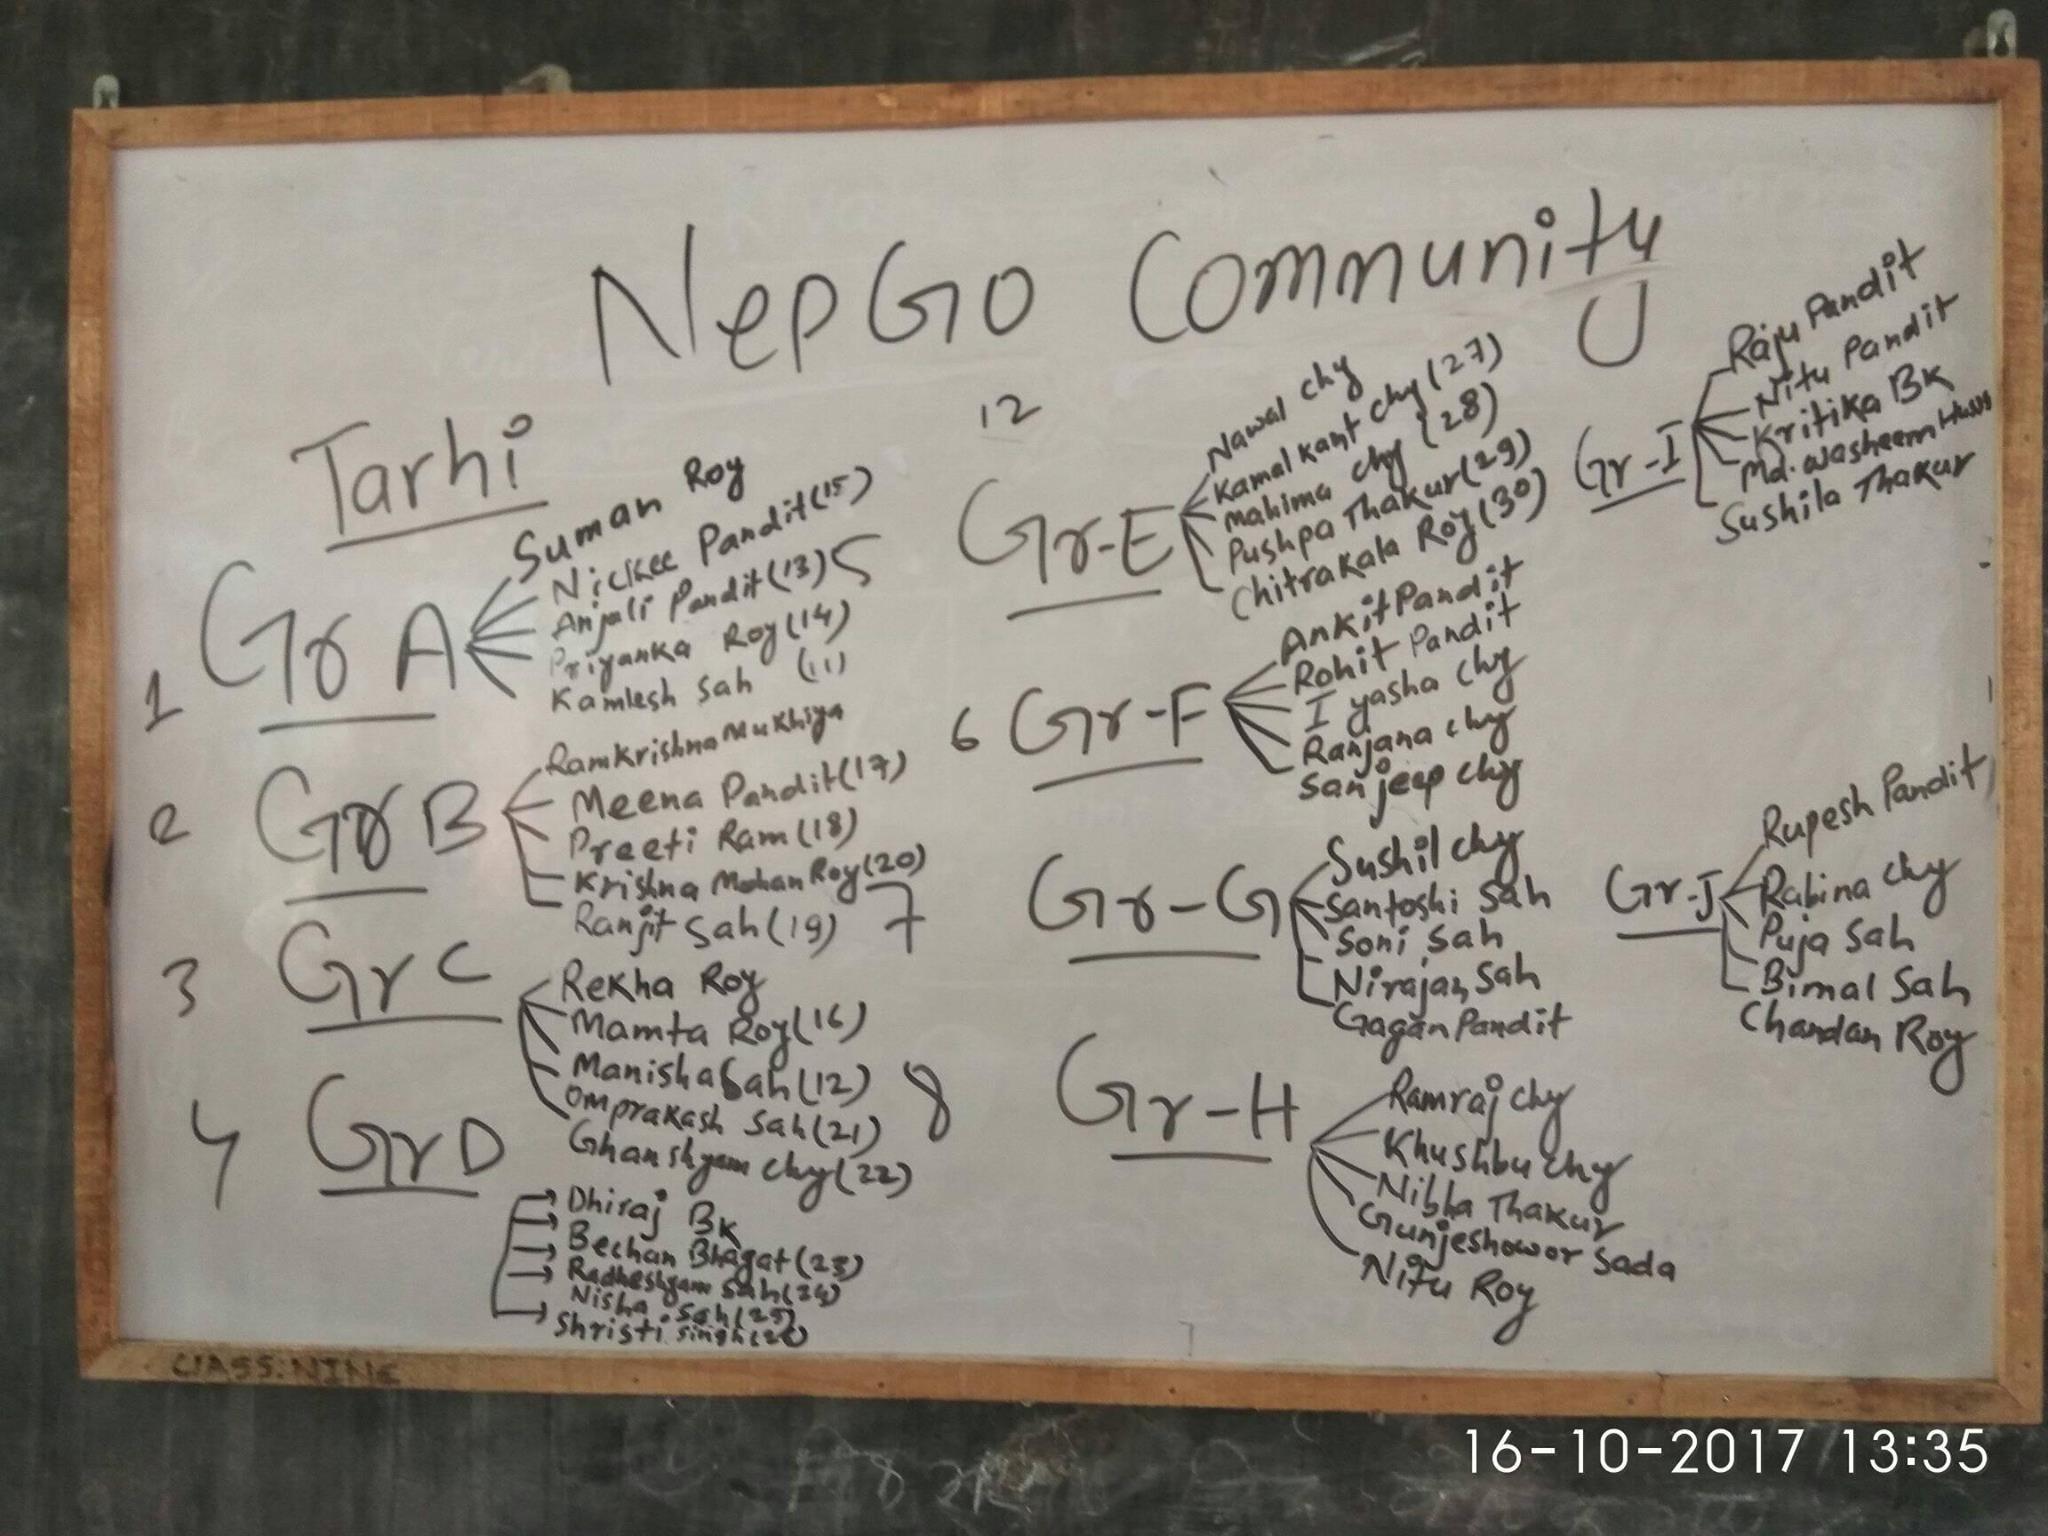 NepGo Community
Tarhi
1 Gr A
Suman Roy
Nickee Pandit (15)
Anjali Pandit (13) 5
Priyanka Roy (14)
Kamlesh Sah (11)
2 Gr B
Ramkrishna Mukhiya
Meena Pandit (17)
Preeti Ram (18)
Krishna Mohan Roy (20)
Ranjit Sah (19) 7
3 Gr C
Rekha Roy
Mamta Roy (16)
Manisha Sah (12) 8
Omprakash Sah (21)
Ghanshyam Chy (22)
4 Gr D
Dhiraj BK
Bechan Bhagat (23)
Radheshyam Sah (24)
Nisha Sah (25)
Shristi Singh (26)
12
Gr-E
Nawal Chy
Kamal Kant Chy (27)
Mahima Chy (28)
Pushpa Thakur (29)
Chitrakala Roy (30)
6 Gr-F
Ankit Pandit
Rohit Pandit
Iyasha Chy
Ranjana Chy
Sanjeep Chy
Gr-G
Sushil Chy
Santoshi Sah
Soni Sah
Nirajan Sah
Gagan Pandit
Gr-H
Ramraj Chy
Khushbu Chy
Nibha Thakur
Gunjeshowor Sada
Nitu Roy
Gr-I
Raju Pandit
Nitu Pandit
Kritika BK
Md. Washeem
Sushila Thakur
Gr-J
Rupesh Pandit
Rabina Chy
Puja Sah
Bimal Sah
Chandan Roy
CLASS: NINE
16-10-2017 13:35